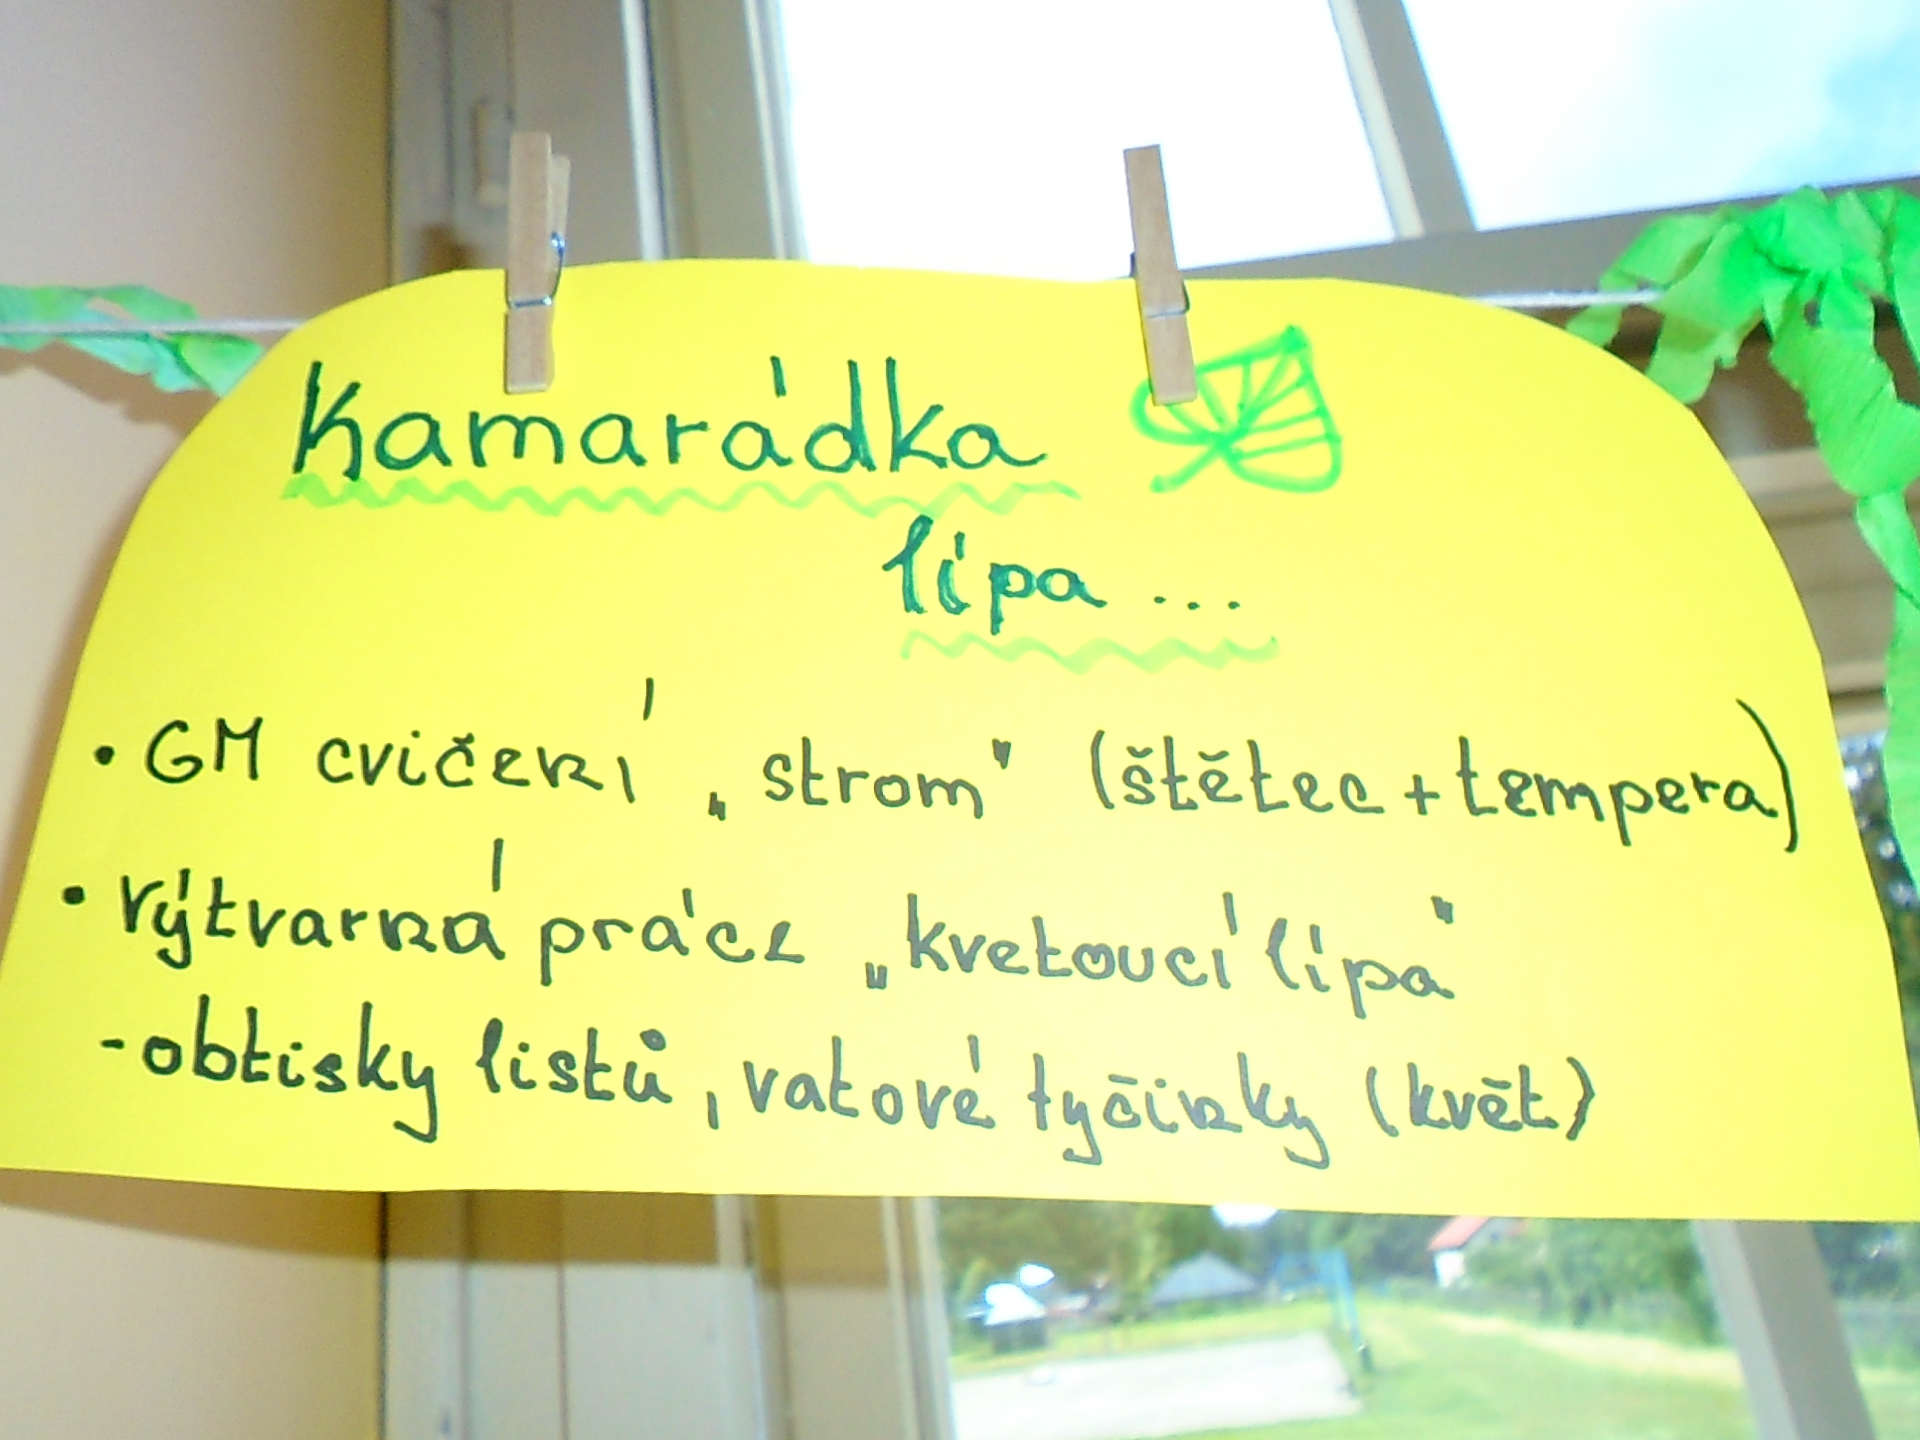 Kamarádka
lípa ...
• GM cvičení „strom" (štětec + tempera)
• Výtvarná práce „kvetoucí lípa"
- obtisky listů, vatové tyčinky (květ)